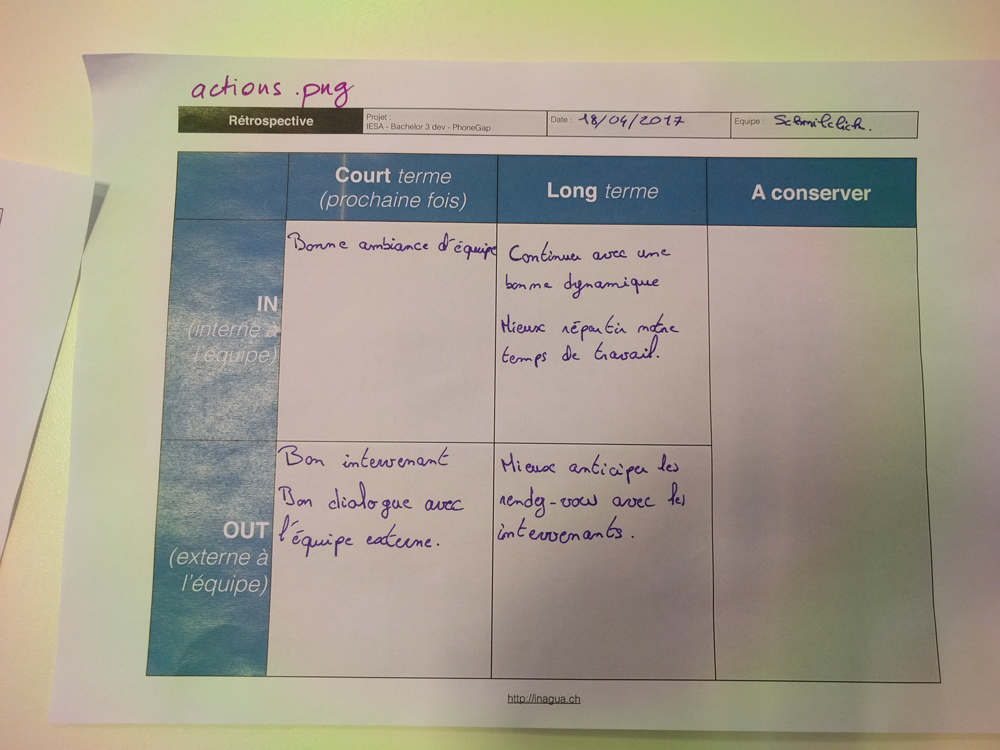 actions.png
Rétrospective
Projet :
IESA - Bachelor 3 dev - PhoneGap
Date : 18/04/2017
Equipe :
Court terme
(prochaine fois)
Long terme
A conserver
IN
(interne à
l'équipe)
Bonne ambiance d'équipe
Continuer avec une
bonne dynamique
Mieux répartir notre
temps de travail.
OUT
(externe à
l'équipe)
Bon intervenant
Bon dialogue avec
l'équipe externe.
Mieux anticiper les
rendez-vous avec les
intervenants.
http://inagua.ch